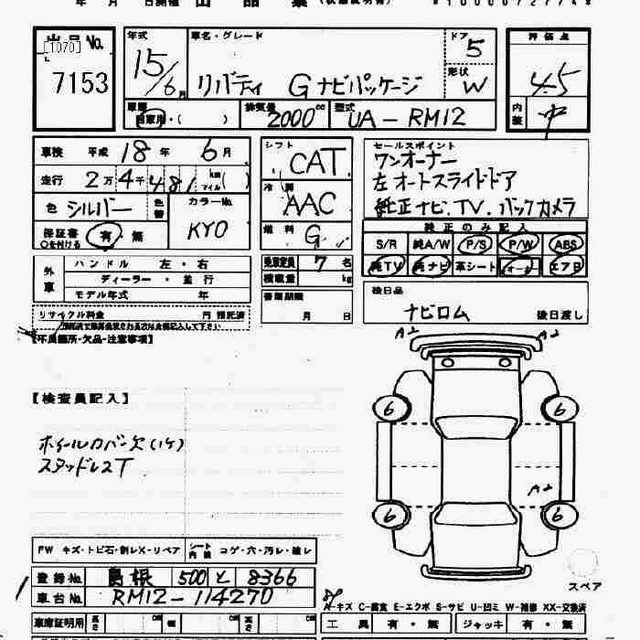 年 月 日開催
出品 No.
[T070]
7153
年式
15/6月
車名・グレード
リバティ Gナビパッケージ
ドア 5
形状 W
車歴
自家用・( )
排気量 2000cc
型式 UA-RM12
評価点
4.5
内装 中
車検 平成 18年 6月
走行 2万4千481 km マイル( )
色 シルバー
色替
カラーNo.
KY0
保証書 有・無
○を付ける
シフト
CAT
冷房
AAC
燃料
G
乗車定員 7名
積載量 kg
書類期限
月 日
セールスポイント
ワンオーナー
左オートスライドドア
純正ナビ.TV.バックカメラ
純正のみ記入
S/R 純A/W P/S P/W ABS
純TV 純ナビ 革シート エアB
後日品
ナビロム 後日渡し
外車
ハンドル 左・右
ディーラー・並行
モデル年式 年
リサイクル料金 円 預託済
【不具箇所・欠品・注意事項】
【検査員記入】
ホイールカバー欠(1ケ)
スタッドレスT
A2 A2
6 6
A2
6 6
スペア
FW キズ・トビ石・割レX・リペア シート内装 コゲ・穴・汚レ・破レ
登録No. 島根 500 と 8366
車台No. RM12-114270
車庫証明用 長さ cm 幅 cm 高さ cm
A-キズ C-腐食 E-エクボ S-サビ U-凹ミ W-補修 XX-交換済
工具 有・無 ジャッキ 有・無